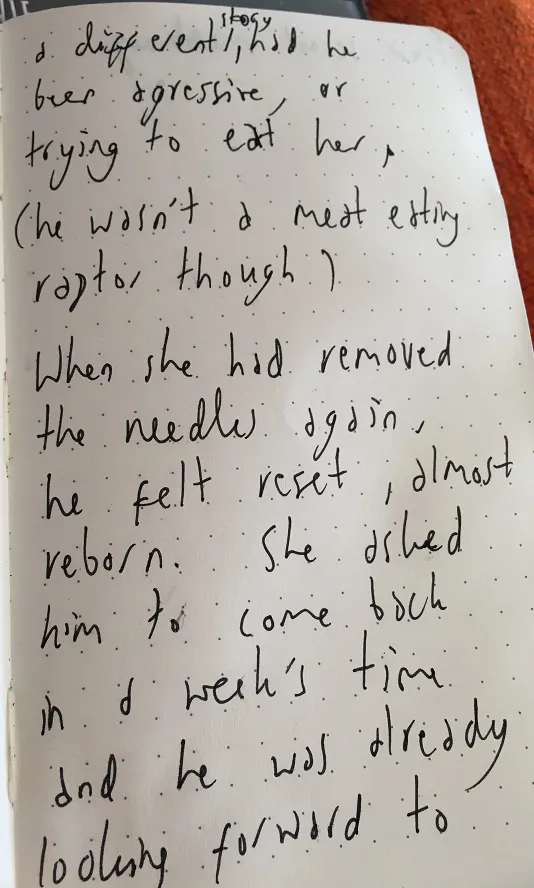 a different story, had he
been agressive, or
trying to eat her,
(he wasn't a meat eating
raptor though)
When she had removed
the needles again,
he felt reset, almost
reborn. She asked
him to come back
in a week's time
and he was already
looking forward to